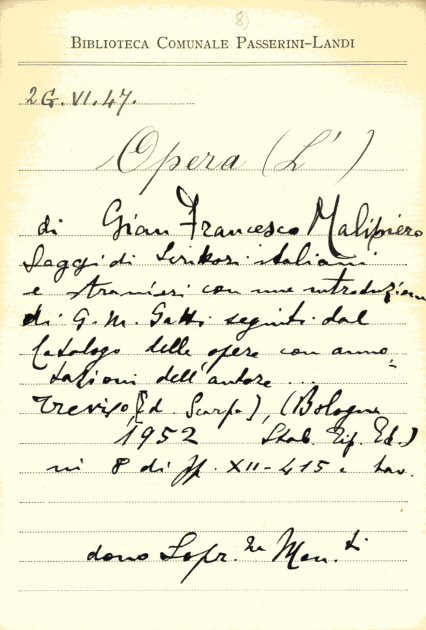 8)
BIBLIOTECA COMUNALE PASSERINI-LANDI
2G.VI.47.
Opera (L')
di Gian Francesco Malipiero
Saggi di Scrittori italiani
e stranieri con una introduzione
di G. M. Gatti seguiti dal
Catalogo delle opere con anno=
tazioni dell'autore ...
Treviso [Ed. Scarpa], (Bologna
1952 Stab. Tip. Ed.)
in 8 di pp. XII-415 e tav.
dono Sopr.za Mon.ti